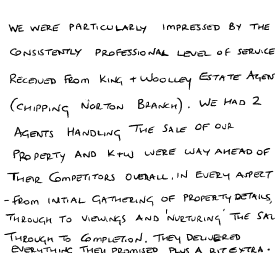 WE WERE PARTICULARLY IMPRESSED BY THE
CONSISTENTLY PROFESSIONAL LEVEL OF SERVICE
RECEIVED FROM KING + WOOLLEY ESTATE AGEN
(CHIPPING NORTON BRANCH). WE HAD 2
AGENTS HANDLING THE SALE OF OUR
PROPERTY AND K+W WERE WAY AHEAD OF
THEIR COMPETITORS OVERALL. IN EVERY ASPECT
- FROM INITIAL GATHERING OF PROPERTY DETAILS,
THROUGH TO VIEWINGS AND 'NURTURING' THE SAL
THROUGH TO COMPLETION. THEY DELIVERED
EVERYTHING THEY PROMISED PLUS A BIT EXTRA.